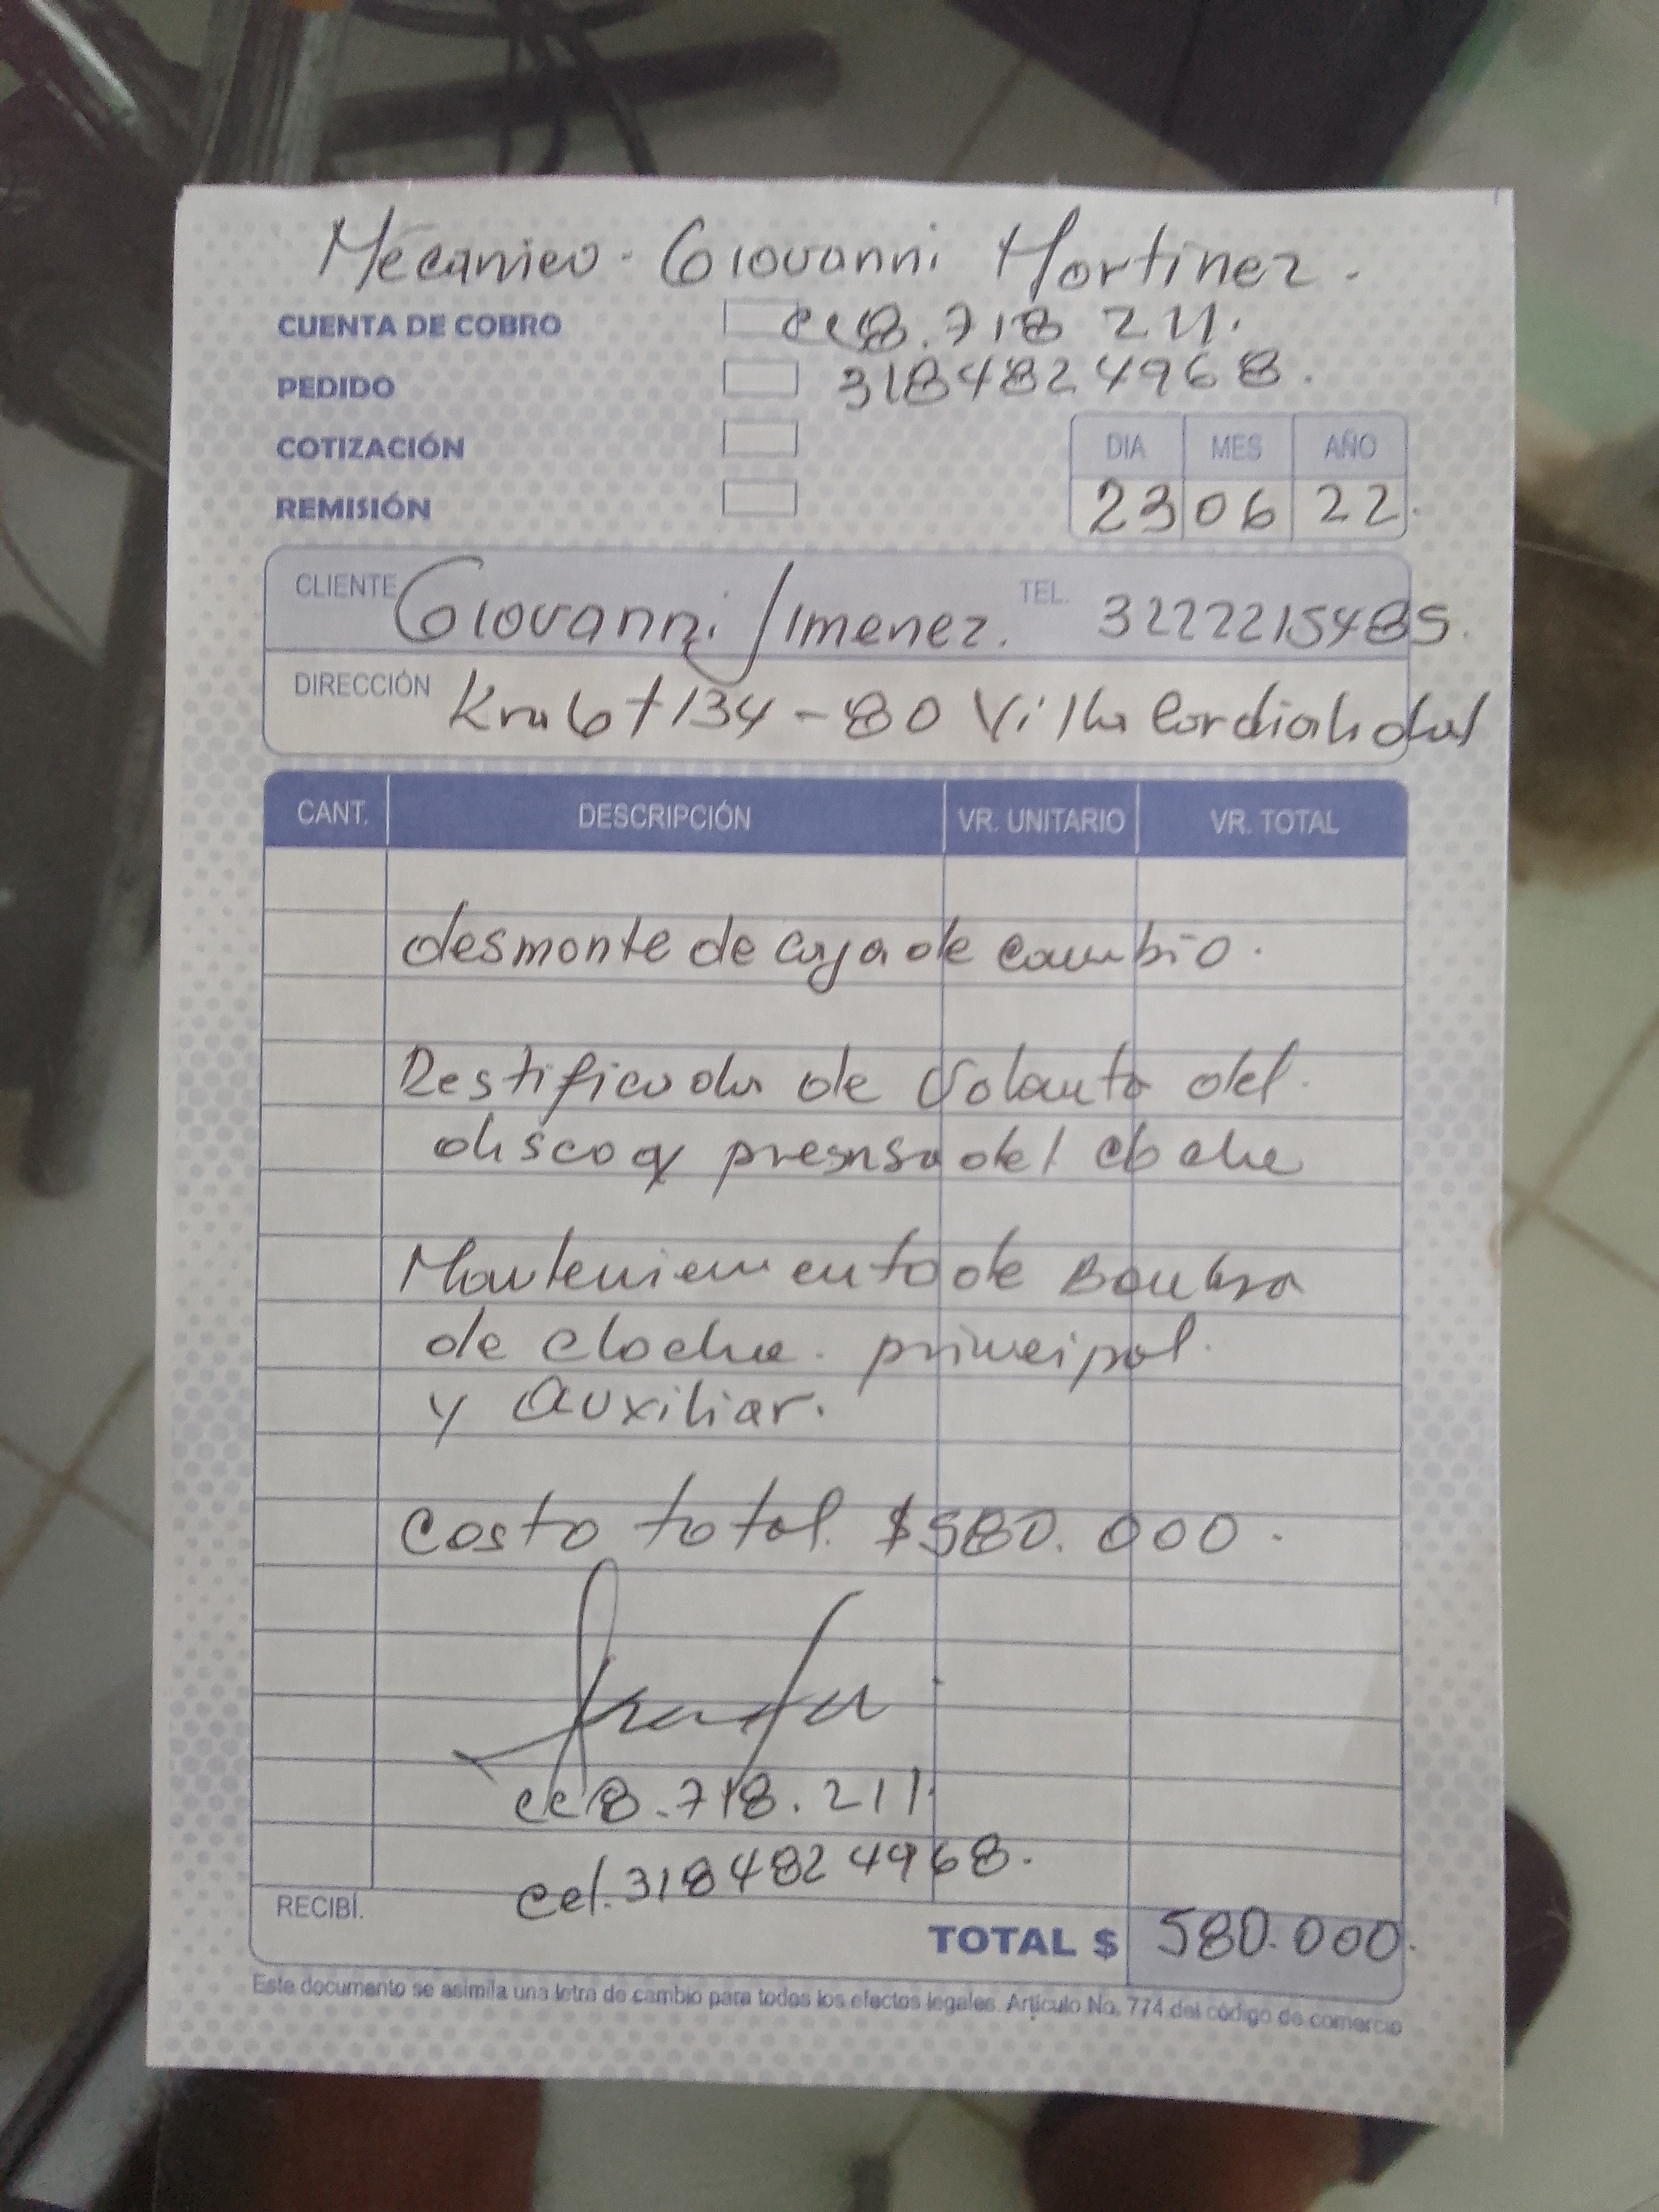 Mecanico - Giovanni Martinez.
CUENTA DE COBRO cc 8.718 211.
PEDIDO 3184824968.
COTIZACIÓN
REMISIÓN
DIA MES AÑO
23 06 22.
CLIENTE Giovanni Jimenez. TEL. 3222215485.
DIRECCIÓN Kra 6 134-80 Villa
CANT. DESCRIPCIÓN VR. UNITARIO VR. TOTAL
desmonte de caja de cambio.
Restificada de Volante del.
disco y prensa del cloche
Mantenimiento de Bomba
de cloche. principal.
y auxiliar.
Costo total. $580.000.
cc 8.718.211.
cel. 3184824968.
RECIBÍ.
TOTAL $ 580.000.
Este documento se asimila una letra de cambio para todos los efectos legales. Artículo No. 774 del código de comercio